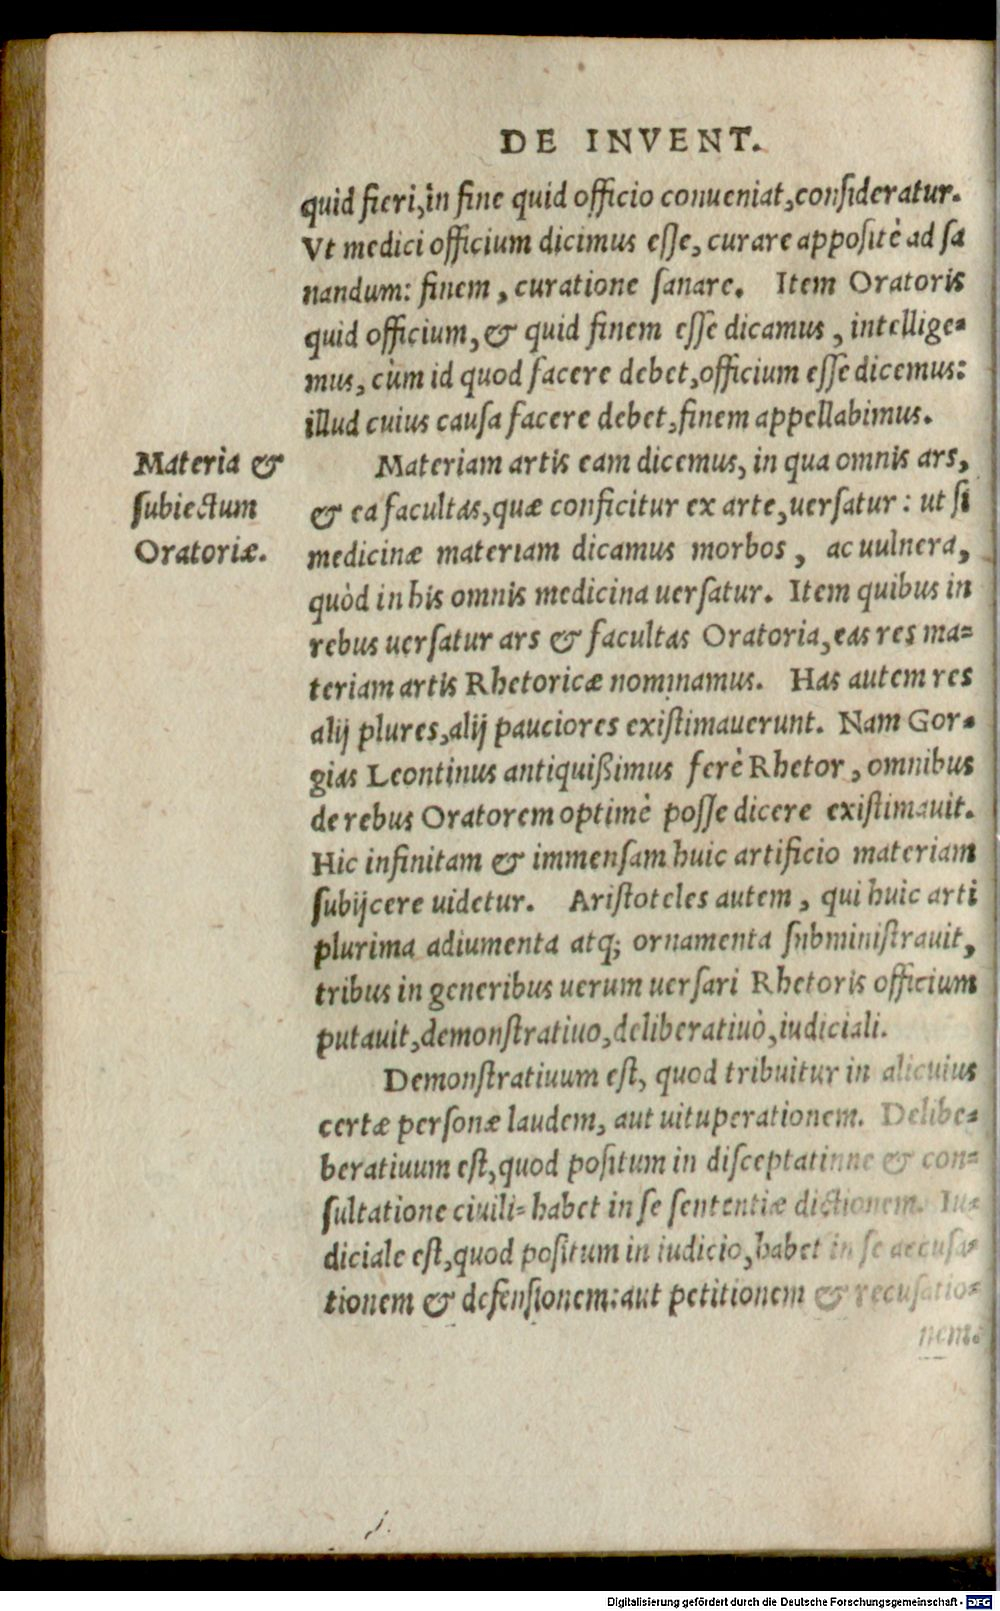 DE INVENT.
quid fieri, in fine quid officio conueniat, consideratur.
Vt medici officium dicimus esse, curare appositè ad sa
nandum: finem, curatione sanare. Item Oratoris
quid officium, & quid finem esse dicamus, intellige=
mus, cùm id quod facere debet, officium esse dicemus:
illud cuius causa facere debet, finem appellabimus.
Materia &
subiectum
Oratoriæ.
Materiam artis eam dicemus, in qua omnis ars,
& ea facultas, quæ conficitur ex arte, uersatur: ut si
medicinæ materiam dicamus morbos, ac uulnera,
quòd in his omnis medicina uersatur. Item quibus in
rebus uersatur ars & facultas Oratoria, eas res ma=
teriam artis Rhetoricæ nominamus. Has autem res
alij plures, alij pauciores existimauerunt. Nam Gor=
gias Leontinus antiquißimus ferè Rhetor, omnibus
de rebus Oratorem optimè posse dicere existimauit.
Hic infinitam & immensam huic artificio materiam
subijcere uidetur. Aristoteles autem, qui huic arti
plurima adiumenta atq; ornamenta subministrauit,
tribus in generibus uerum uersari Rhetoris officium
putauit, demonstratiuo, deliberatiuò, iudiciali.
Demonstratiuum est, quod tribuitur in alicuius
certæ personæ laudem, aut uituperationem. Delibe=
beratiuum est, quod positum in disceptatinne & con=
sultatione ciuili= habet in se sententiæ dictionem. Iu=
diciale est, quod positum in iudicio, habet in se accusa=
tionem & defensionem: aut petitionem & recusatio=
nem.
Digitalisierung gefördert durch die Deutsche Forschungsgemeinschaft - DFG